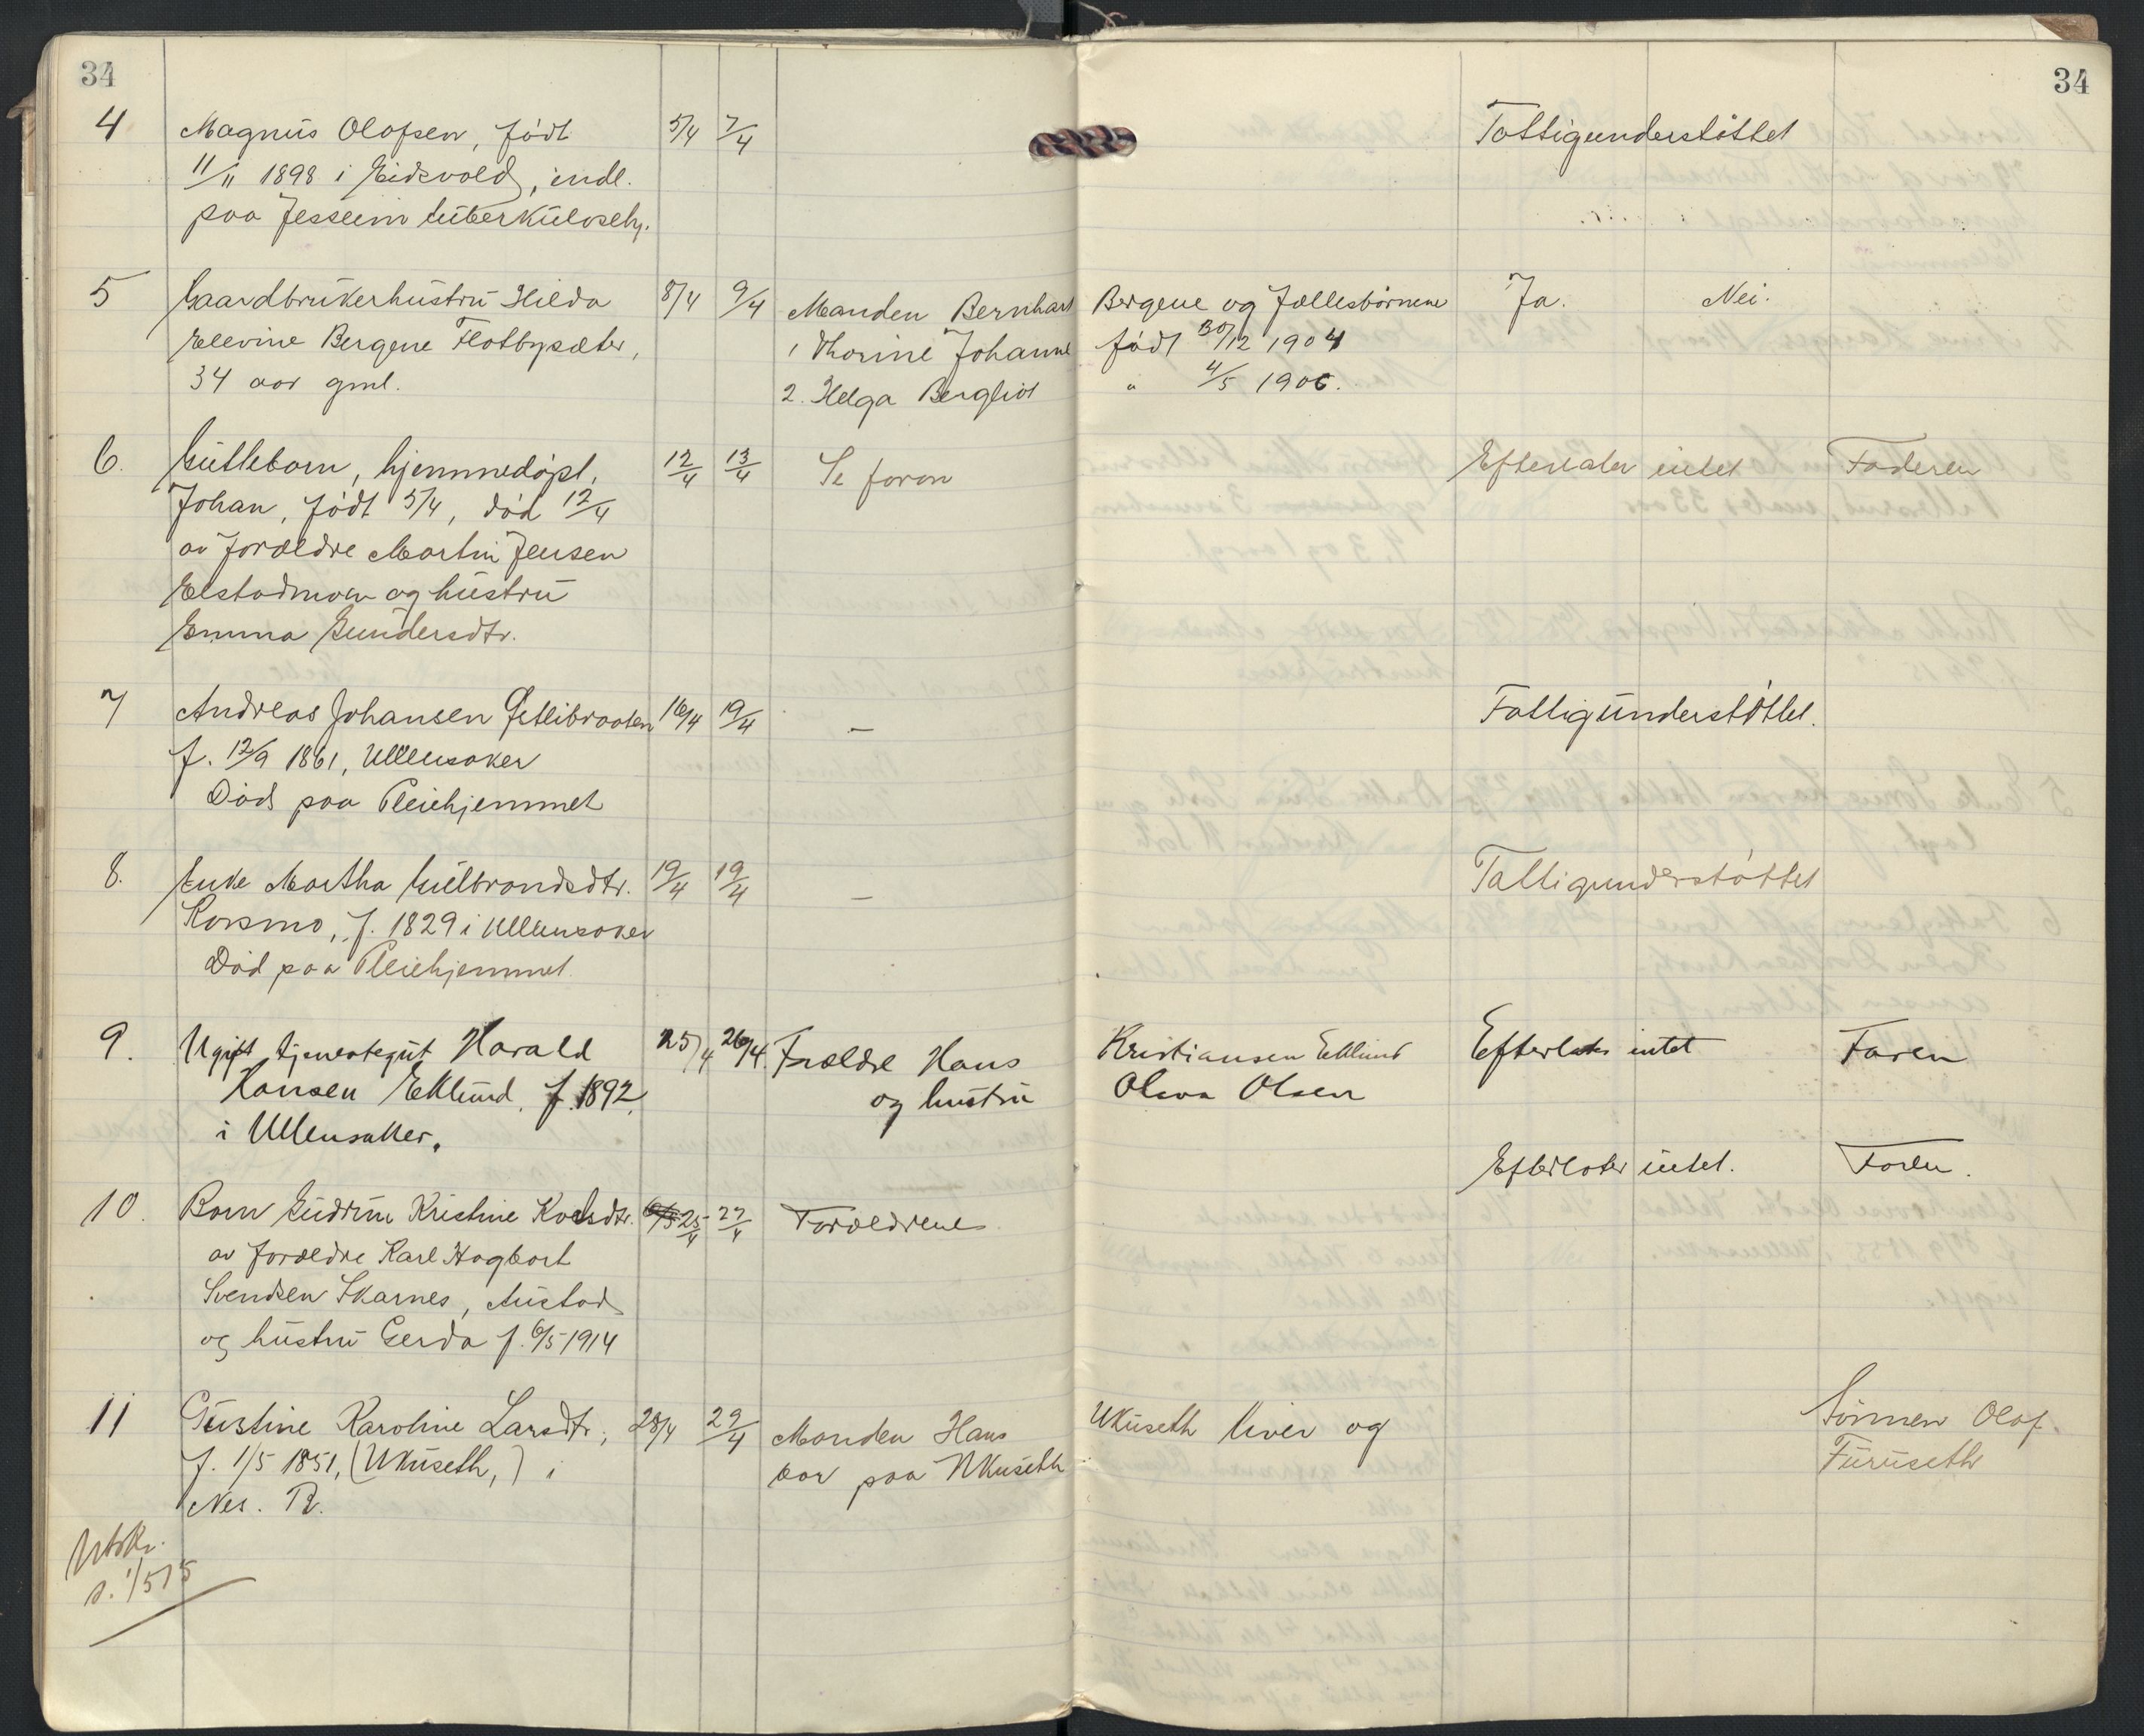 34
34
4 Magnus Olofsen, født 5/4 7/4 Fattigunderstøttet
11/11 1898 i Eidsvold, indl.
paa Jesseim tuberkuloseh.
5 Gaardbrukerhustru Hilda 8/4 9/4 Manden Bernhart Bergene og Fællesbørnene Ja. Nei.
Elevine Bergene Flotbysæter, 1 Thorine Johanne født 30/12 1904
34 aar gml. 2. Helga Bergliot " 4/5 1906.
6. Guttebarn, hjemmedøpt, 12/4 13/4 Se foran Efterlater intet Faderen
Johan, født 5/4, død 12/4
av forældre Martin Jensen
Elstadmoen og hustru
Emma Gundersdtr.
7 Andreas Johansen Østlibraaten 16/4 19/4 — Fattigunderstøttet.
f. 12/9 1861, Ullensaker
Død paa Pleiehjemmet
8. Enke Martha Gulbrandsdtr. 19/4 19/4 — Fattigunderstøttet
Korsmo, f. 1829 i Ullensaker
Død paa Pleiehjemmet.
9. Ugift tjenestegut Harald 25/4 26/4. Forældre Hans Kristiansen Eklund Efterlater intet Faren
Hansen Eklund, f. 1892, og hustru Oleva Olsen
i Ullensaker.
Efterlater intet. Faren.
10. Barn Gudrun Kristine Karlsdtr. 25/4 27/4 Forældrene
av forældre Karl Hagbart
Svendsen Skarnes, Austad
og hustru Gerda f. 6/5 1914
11 Gustine Karoline Larsdtr, 28/4 29/4 Manden Hans Ukuseth liver og Sønnen Olaf.
f. 1/5 1851, (Ukuseth,) i bor paa Ukuseth Furuseth
Nes. R.
Utskr.
s. 1/5 15